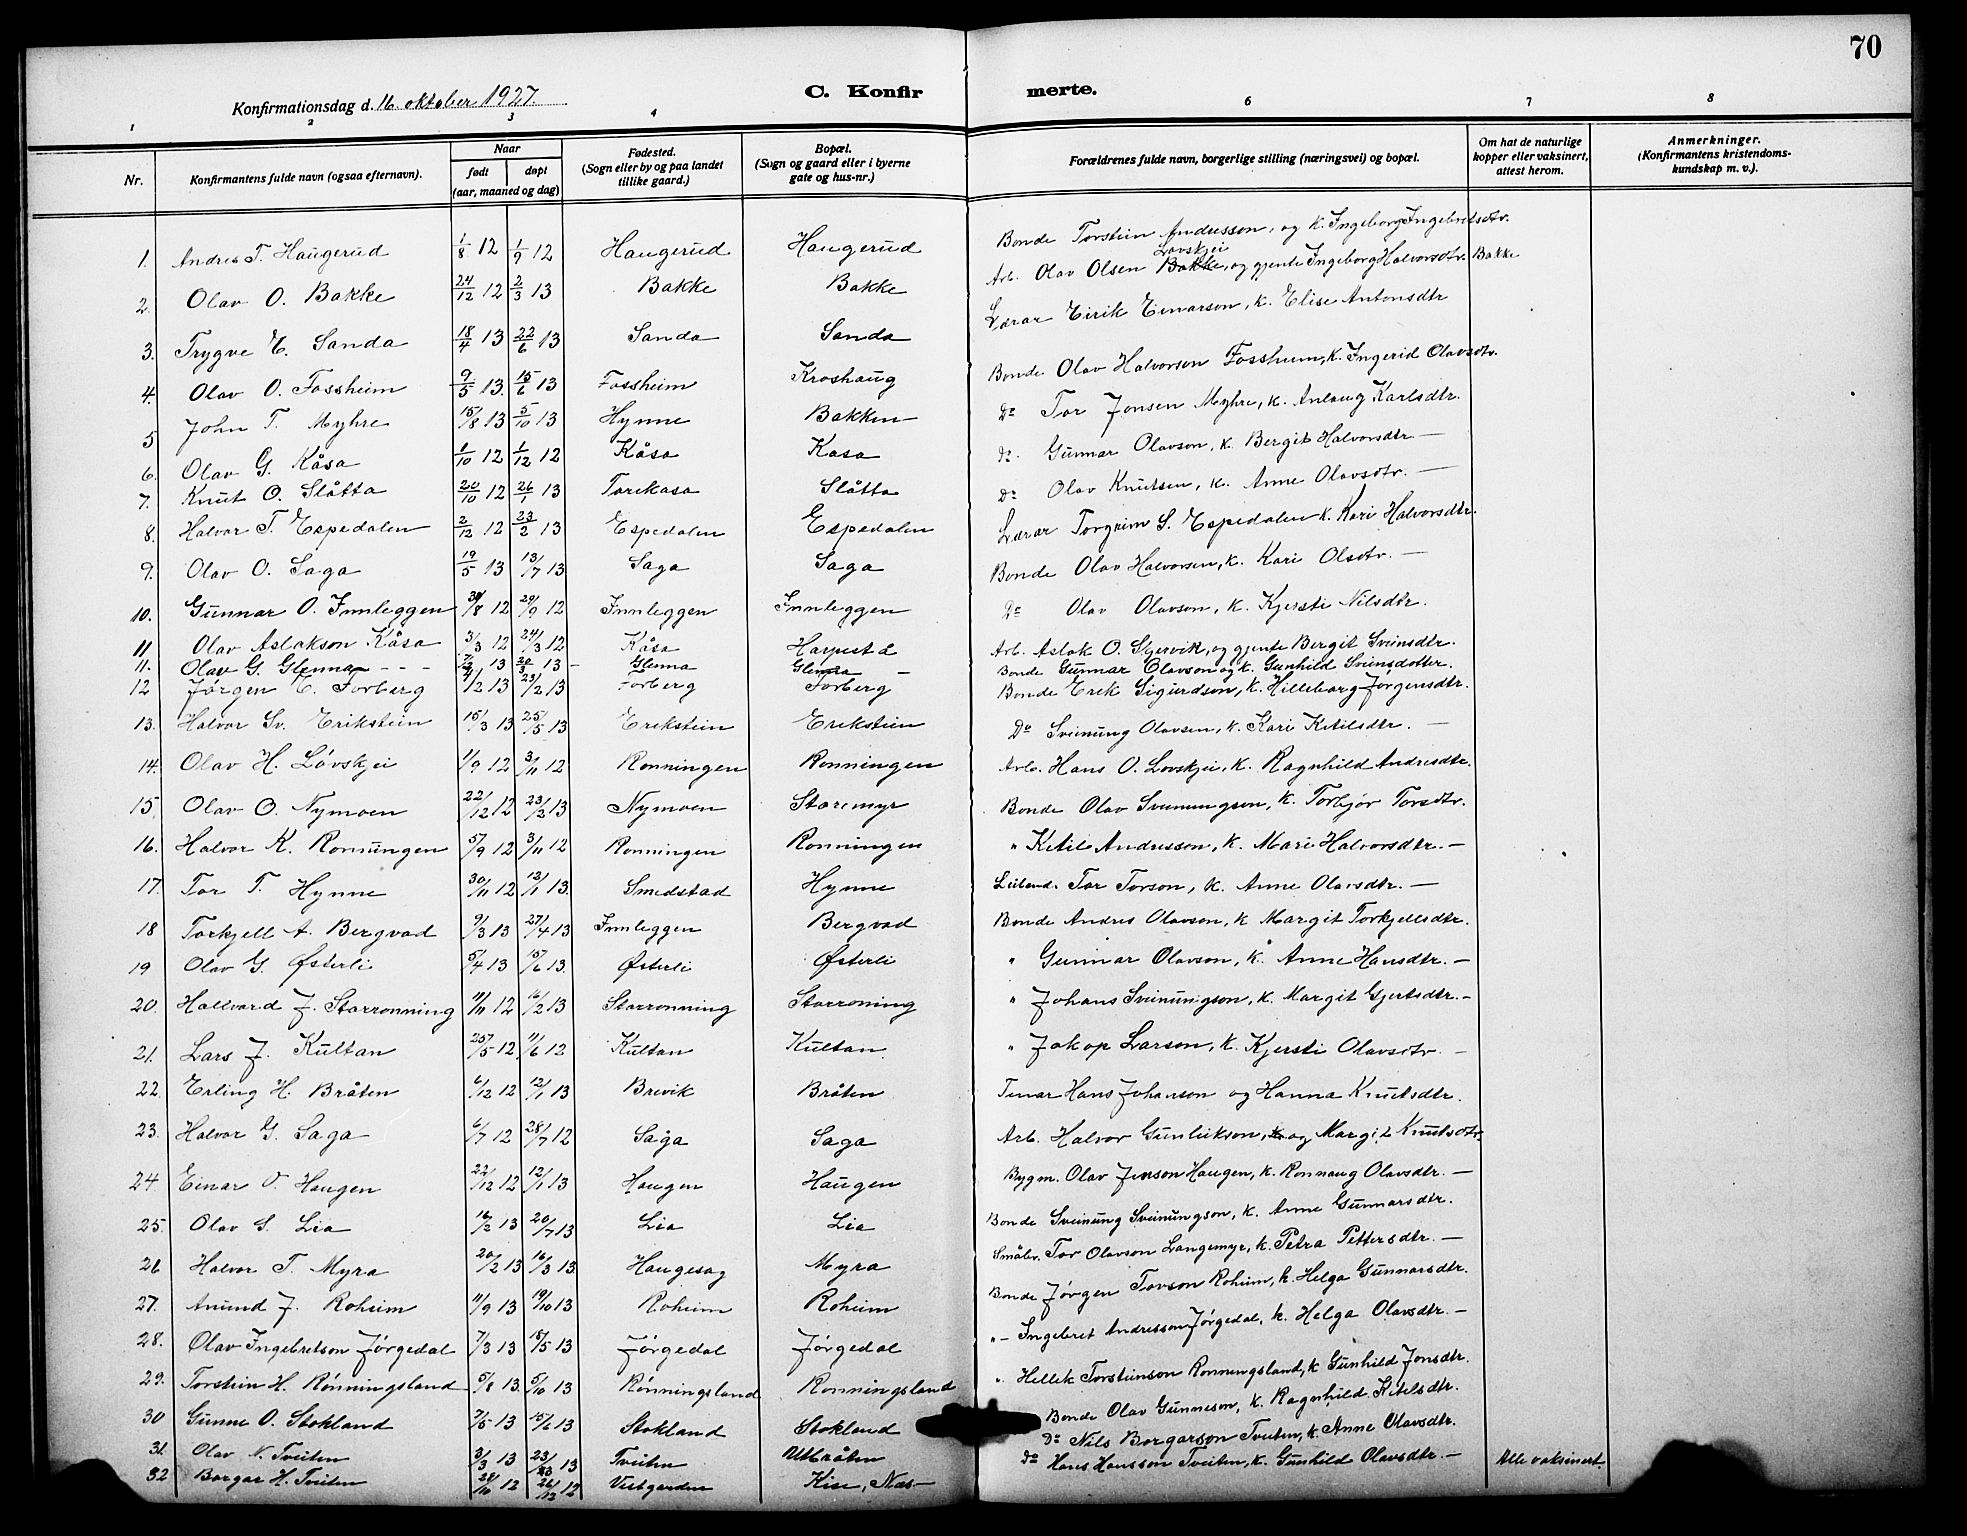 70
Konfirmationsdag d. 16. oktober 1927.
C. Konfirmerte.
1 2 3 4 6 7 8
Nr. | Konfirmantens fulde navn (ogsaa efternavn). | Naar født døpt (aar, maaned og dag) | Fødested. (Sogn eller by og paa landet tillike gaard.) | Bopæl. (Sogn og gaard eller i byerne gate og hus-nr.) | Forældrenes fulde navn, borgerlige stilling (næringsvei) og bopæl. | Om hat de naturlige kopper eller vaksinert, attest herom. | Anmerkninger. (Konfirmantens kristendomskundskap m. v.).
1. Andres T. Haugerud 1/8 12 1/9 12 Haugerud Haugerud Bonde Torstein Andresson, og k. Ingeborg Ingebretsdtr.
2. Olav O. Bakke 24/12 12 2/3 13 Bakke Bakke Arb. Olav Olsen Bakke Lovskjei, og gjente Ingeborg Halvorsdtr. Bakke
3. Trygve E. Sanda 18/4 13 22/6 13 Sanda Sanda Lærar Eirik Einarson, k. Elise Antonsdtr
4. Olav O. Fossheim 9/5 13. 15/6 13 Fossheim Kroshaug Bonde Olav Halvorson Fossheim, k. Ingerid Olavsdtr.
5 John T. Myhre 15/8 13 5/10 13 Hynne Bakken Do Tor Jonsen Myhre, k. Anlaug Karlsdtr.
6. Olav G. Kåsa 6/10 12 1/12 12 Kåsa Kasa Do. Gunnar Olavson, k. Bergit Halvorsdtr. —
7. Knut O. Slåtta 20/10 12 26/1 13 Torekasa Slåtta Do Olav Knutsen, k. Anne Olavsdtr. —
8. Halvor T. Espedalen 2/12 12 23/2 13 Espedalen Espedalen Lærar Torgrim S. Espedalen k. Kari Halvorsdtr.
9. Olav O. Saga 19/5 13 13/7 13 Saga Saga Bonde Olav Halvorsen, k. Kari Olsdtr. —
10. Gunnar O. Innleggen 30/8 12 29/9 12 Innleggen Innleggen Do Olav Olavson, k. Kjersti Nilsdtr.
11 Olav Aslakson Kåsa 3/3 12 24/3 12 Kåsa Harpestd Arb. Aslak O. Stjervik, og gjente Bergit Sveinsdtr.
11. Olav G. Glenna - - - 13 20/3 13 – Glenna Glenna – Bonde Gunnar Olavson og k. Gunhild Sveinsdotter.
12 Jørgen E. Forberg 4/2 13 23/2 13 Forberg Forberg Bonde Erik Sigurdson, k. Hilleborg Jørgensdtr.
13. Halvor Sv. Erikstein 15/3 13 25/5 13 Erikstein Erikstein Do Sveinung Olavsen, k. Kari Ketilsdtr. —
14. Olav H. Lövskjei 1/9 12 3/11 12 Ronningen Ronningen Arb. Hans O. Lovskjei, k. Ragnhild Andresdtr.
15. Olav O. Nymoen 22/12 12 23/2 13 Nymoen Staremyr Bonde Olav Sveinungson, k. Torbjør Torsdtr.
16. Halvor K. Ronningen 5/9 12 3/11 12 Ronningen Ronningen " Ketil Andresson, k. Mari Halvorsdtr. —
17. Tor T. Hynne 30/11 12 12/1 13. Smedstad Hynne Leilend. Tor Torson, k. Anne Olavsdtr. —
18 Torkjell A. Bergvad 9/3 13 27/4 13 Innleggen Bergvad Bonde Andres Olavson, k Margit Torkjellsdtr.
19 Olav G. Østerli 5/4 13 15/6 13. Østerli Østerli " Gunnar Olavson, k. Anne Hansdtr. —
20. Hallvard J. Storronning 11/11 12 16/2 13 Storronning Storroning " Johans Sveinungson, k. Margit Gjertsdtr. –
21. Lars J. Kultan 25/5 12 11/6 12 Kultan Kultan " Jakop Larson, k. Kjersti Olavsdtr. –
22. Erling H. Bråten 6/12 12 12/1 13 Brevik Bråten Tenar Hans Johanson og Hanna Knutsdtr.
23. Halvor G. Saga 6/7 12 28/7 12 Saga Saga Arb. Halvor Gunleikson, og Margit Knutsdtr.
24. Einar O. Haugen 22/12 12 12/1 13 Haugen Haugen Bygm. Olav Jenson Haugen, k. Ronnaug Olavsdtr. —
25. Olav S. Lia 16/2 13 20/7 13 Lia Lia Bonde Sveinung Sveinungson, k. Anne Gunnarsdtr.
26 Halvor T. Myra 20/2 13 16/3 13. Haugesag Myra Småbr. Tor Olavson Langemyr, k. Petra Pettersdtr. —
27. Anund J. Roheim 11/9 13 19/10 13 Roheim Roheim Bonde Jørgen Torson Roheim, k. Helga Gunnarsdtr.
28. Olav Ingebretson Jörgedal 7/3 13 18/5 13 Jörgedal Jörgedal "– Ingebret Andresson Jörgedal, k. Helga Olavsdtr. –
29. Torstein H. Rönningsland 5/8 13. 5/10 13 Rönningsland Ronningsland " Hellek Torsteinson Ronningsland, k Gunhild Jonsdtr.
30 Gunne O. Stokland 7/5 13 15/6 13 Stokland Stokland Bonde Olav Gunneson, k. Ragnhild Ketelsdtr.
31. Olav N. Tveiten 3/3 13 23/3 13 Tveiten Utbråten Do Nils Borgarson Tveiten, k. Anne Olavsdtr.
32 Borgar H. Tveiten 28/10 12 26/12 12 Vestgarden Kise, Nes – Do Hans Hansson Tveiten, k. Gunhild Olavsdtr – Alle vaksinert.